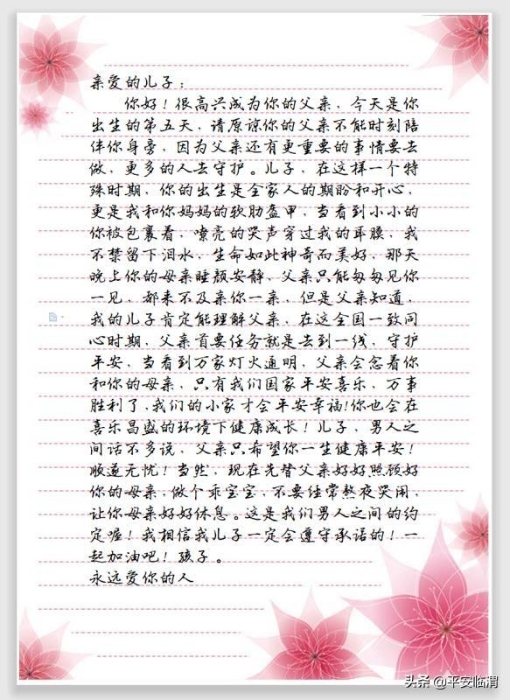 亲爱的儿子：
你好！很高兴成为你的父亲，今天是你
出生的第五天，请原谅你的父亲不能时刻陪
伴你身旁，因为父亲还有更重要的事情要去
做，更多的人去守护。儿子，在这样一个特
殊时期，你的出生是全家人的期盼和开心，
更是我和你妈妈的软肋盔甲，当看到小小的
你被包裹着，嘹亮的哭声穿过我的耳膜，我
不禁留下泪水，生命如此神奇而美好，那天
晚上你的母亲睡颜安静，父亲只能匆匆见你
一见，都来不及亲你一亲，但是父亲知道，
我的儿子肯定能理解父亲，在这全国一致同
心时期，父亲首要任务就是去到一线，守护
平安，当看到万家灯火通明，父亲会念着你
和你的母亲，只有我们国家平安喜乐，万事
胜利了，我们的小家才会平安幸福！你也会在
喜乐昌盛的环境下健康成长！儿子，男人之
间话不多说，父亲只希望你一生健康平安！
顺遂无忧！当然，现在先替父亲好好照顾好
你的母亲，做个乖宝宝，不要经常熬夜哭闹，
让你母亲好好休息。这是我们男人之间的约
定喔！我相信我儿子一定会遵守承诺的！一
起加油吧！孩子。
永远爱你的人
头条 @平安临渭